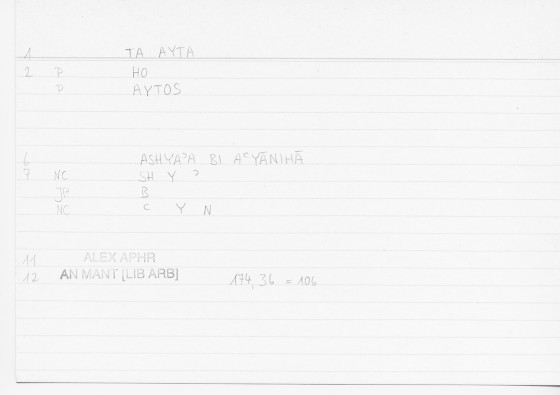 1 TA AYTA
2 P HO
P AYTOS
6 ASHYAʾA BI AʿYĀNIHĀ
7 NC SH Y ʾ
JP B
NC ʿ Y N
11 ALEX APHR
12 AN MANT [LIB ARB] 174, 36 = 106